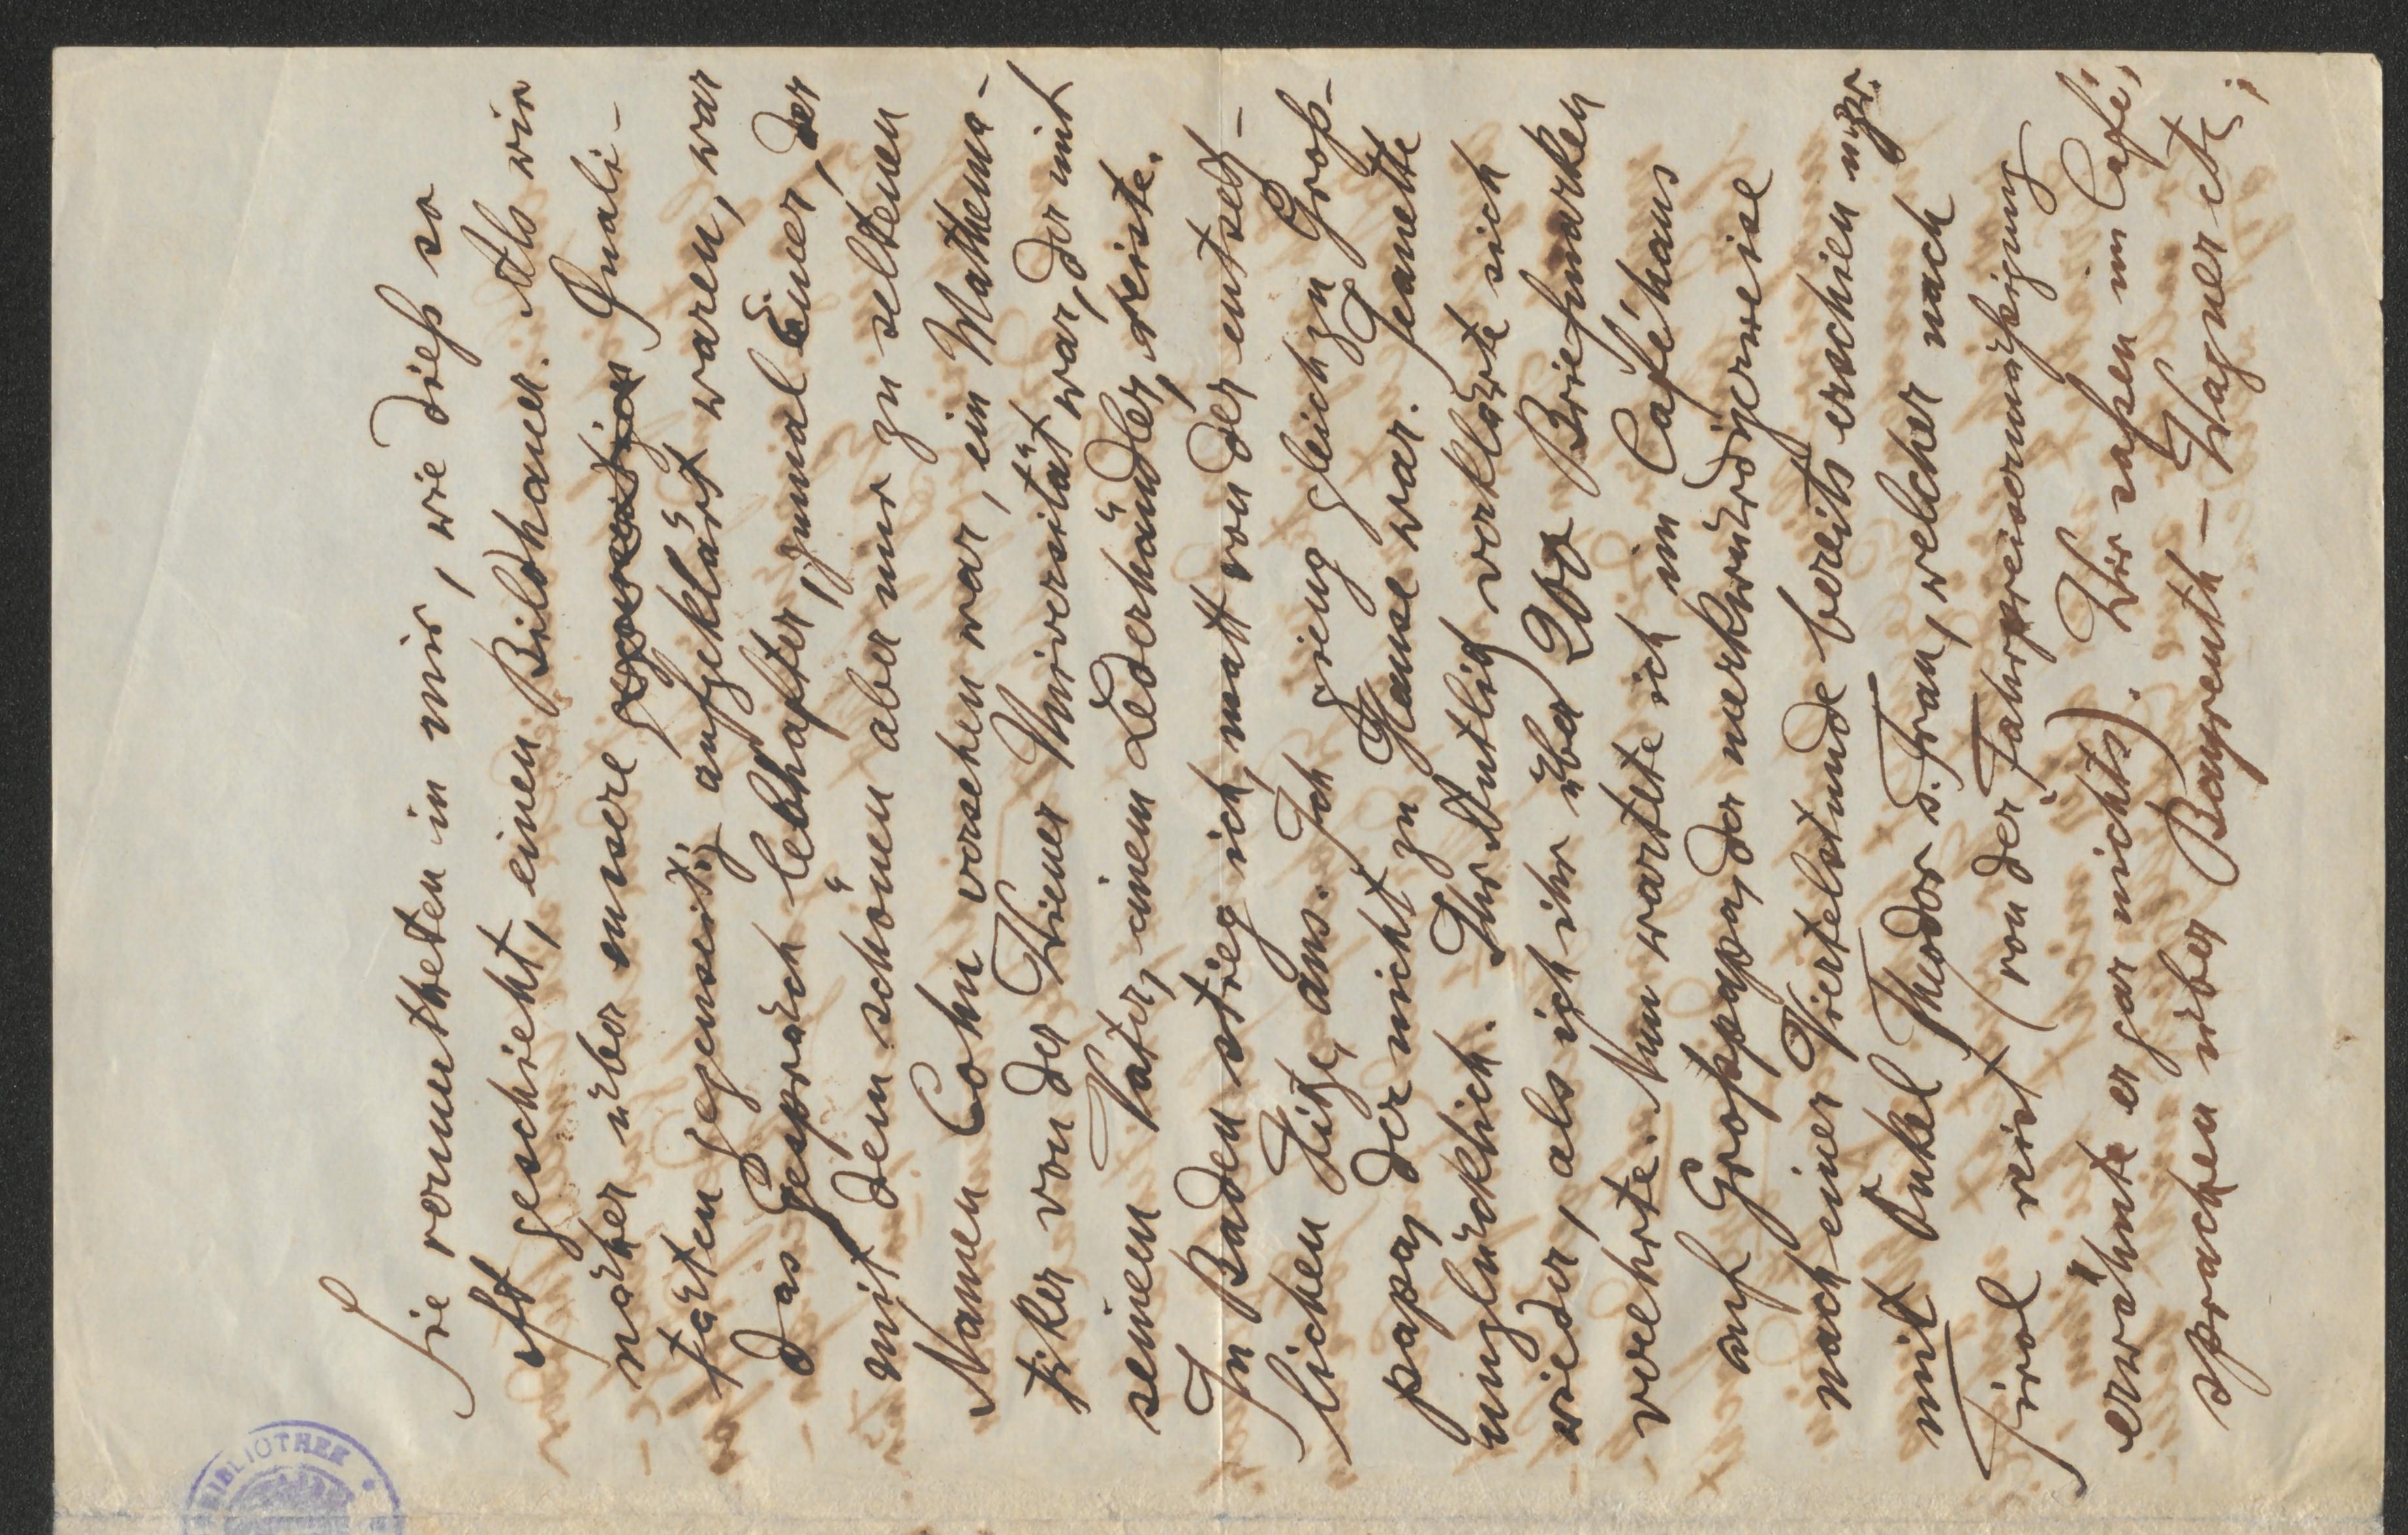 Sie vermutheten in mir, wie dieß so
oft geschieht, einen Bildhauer. Als wir
näher über unsere Quali-
täten gegenseitig aufgeklärt waren, war
das Gespräch lebhafter, zumal Einer, der
mit dem schönen aber nur zu seltenen
Namen Cohn versehen war, ein Mathema-
tiker von der Wiener Universität war, der mit
seinem Vater, einem Lederhändler, reiste.
In Baden stieg ich, matt von der entsetz-
lichen Hitze, aus. Ich gieng gleich zu Groß-
papa, der nicht zu Hause war. Jeanette
unglücklich. Ihr Antlitz verklärte sich
wieder, als ich ihr über 200 Briefmarken
verehrte. Nun wartete ich im Caféhaus
auf Großpapa, der merkwürdigerweise
nach einer Viertelstunde bereits erschien uzw.
mit Onkel Theodor s. Frau, welcher nach
Tirol reist (von der Fahrpreisermäßigung
erwähnte er gar nichts). Wir saßen im Café,
sprachen über Bayreuth – Wagner etc;
BIBLIOTHEK